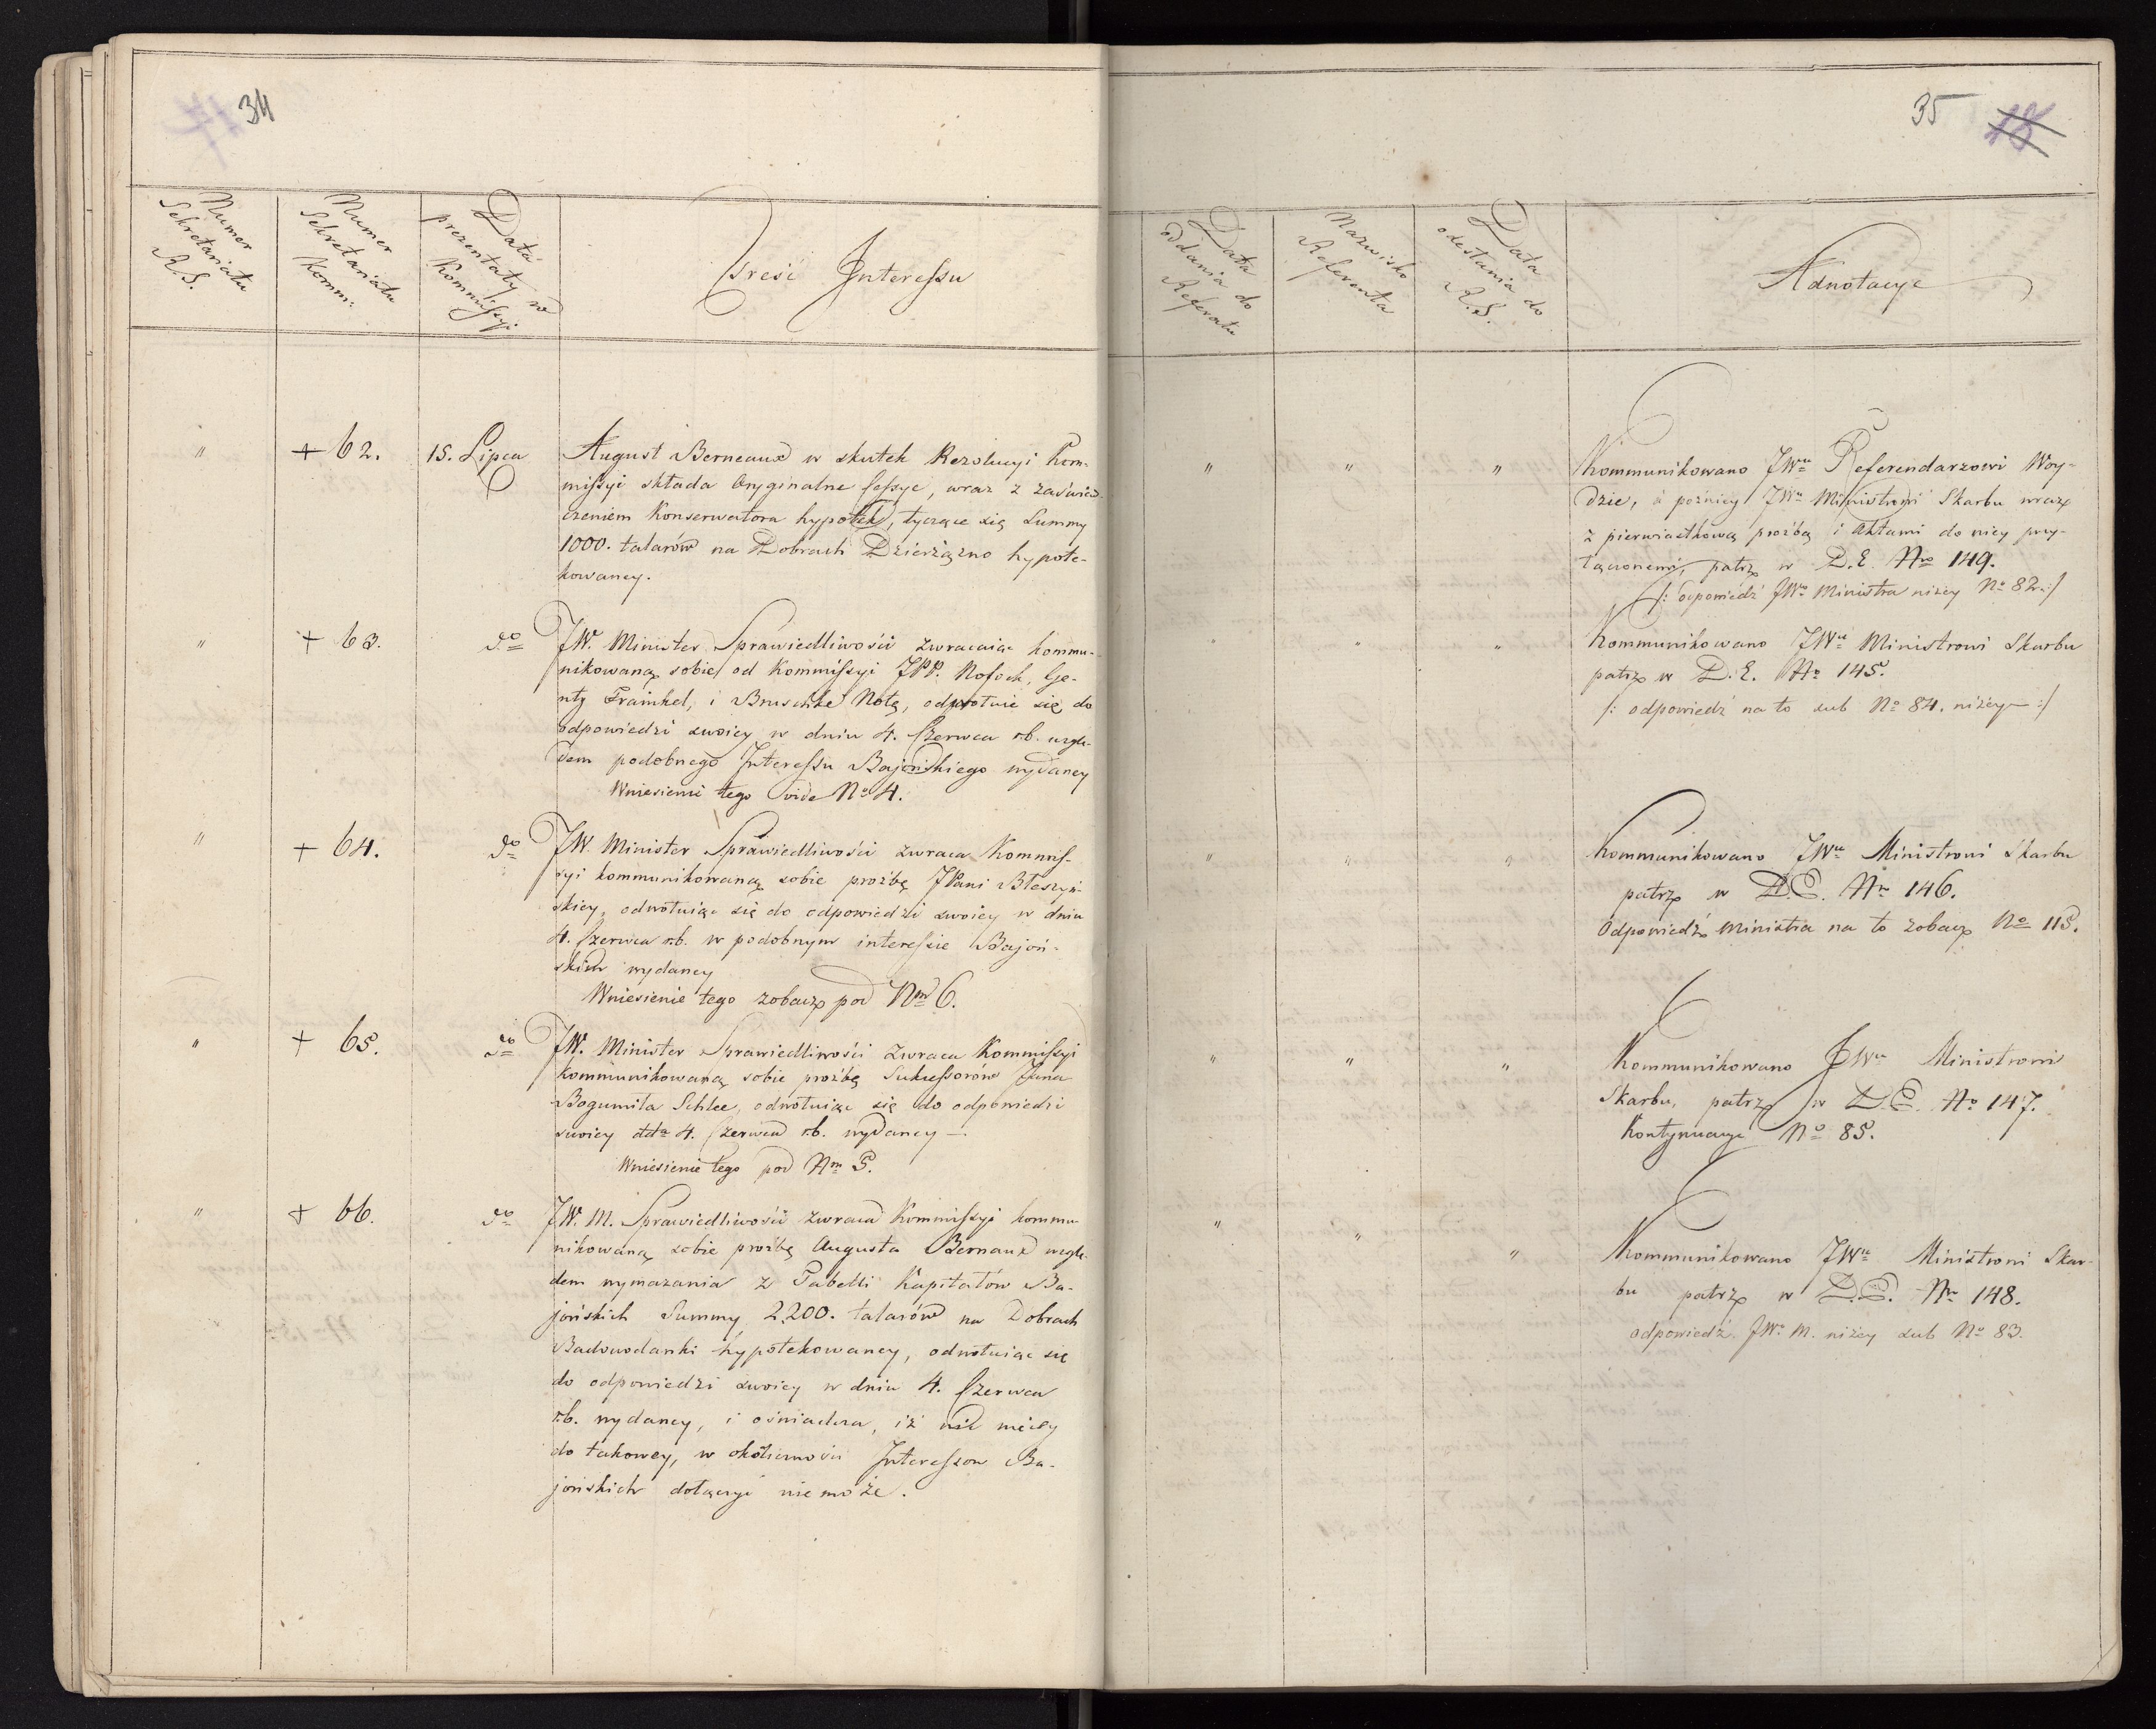 34
Numer Sekretariatu R. S.
Numer Sekretariatu Komm:
Data prezentaty w Kommissyi
Treść Interessu
" + 62. 15. Lipca
August Berneaux w skutek Rezolucyi Kom-
missyi składa Oryginalne Cessye, wraz z zaświad-
czeniem Konserwatora hypotek, tyczące się Summy
1000. talarów na Dobrach Dzierzązno hypote-
kowaney.
" + 63. do
JW. Minister Sprawiedliwości zwracaiąc kommu-
nikowaną sobie od Kommissyi JPP. Nosoch, Ge-
nty Frainkel, i Bruschke Notę, odwołuie się do
odpowiedzi swoiey w dniu 4. Czerwca r.b. wzglę-
dem podobnego Interessu Bajońskiego wydaney
Wniesienie tego vide No 4.
" + 64. do
JW. Minister Sprawiedliwości zwraca Kommis-
syi kommunikowaną sobie prożbę JPani Błeszyń-
skiey, odwołuiąc się do odpowiedzi swoiey w dniu
4. Czerwca r.b. w podobnym interessie Bajoń-
skim wydaney
Wniesienie tego zobacz pod Nm 6.
" + 65. do
JW. Minister Sprawiedliwości zwraca Kommissyi
kommunikowaną sobie prożbę Sukcessorów Jana
Bogumiła Schlee, odwołuiąc się do odpowiedzi
swoiey dda 4. Czerwca r.b. wydaney —
Wniesienie tego pod Nm 5.
" + 66. do
JW. M. Sprawiedliwości zwraca Kommissyi kommu-
nikowaną sobie prożbę Augusta Bernaux wzglę-
dem wymazania z Tabelli Kapitałów Ba-
jońskich Summy 2,200. talarów na Dobrach
hypotekowaney, odwołuiąc się
do odpowiedzi swoiey w dniu 4. Czerwca
r.b. wydaney, i oświadcza, iż nic więcey
do takowey, w okoliczności Interessow Ba-
jońskich dołączyć niemoże.
35 18
Data oddania do Referatu
Nazwisko Referenta
Data odesłania do R. S.
Adnotacye
" " "
Kommunikowano JWu Referendarzowi Woy-
dzie, a pożniey JWu Ministrowi Skarbu wraz
z pierwiastkową prożbą i Aktami do niey przy-
łączonemi, patrz w D. E. No 149.
/: odpowiedź JWo Ministra niżey No 82 :/
" " "
Kommunikowano JWu Ministrowi Skarbu
patrz w D. E. No 145.
/: odpowiedź na to sub No 84. niżey :/
" " "
Kommunikowano JWu Ministrowi Skarbu
patrz w D. E. Nr 146.
Odpowiedź Ministra na to zobacz No 115.
" " "
Kommunikowano JWu Ministrowi
Skarbu, patrz w D. E. No 147.
Kontynuacya No 85.
" " "
Kommunikowano JWu Ministrowi Skar-
bu patrz w D. E. Nr 148.
odpowiedź JWo M. niżey sub No 83.